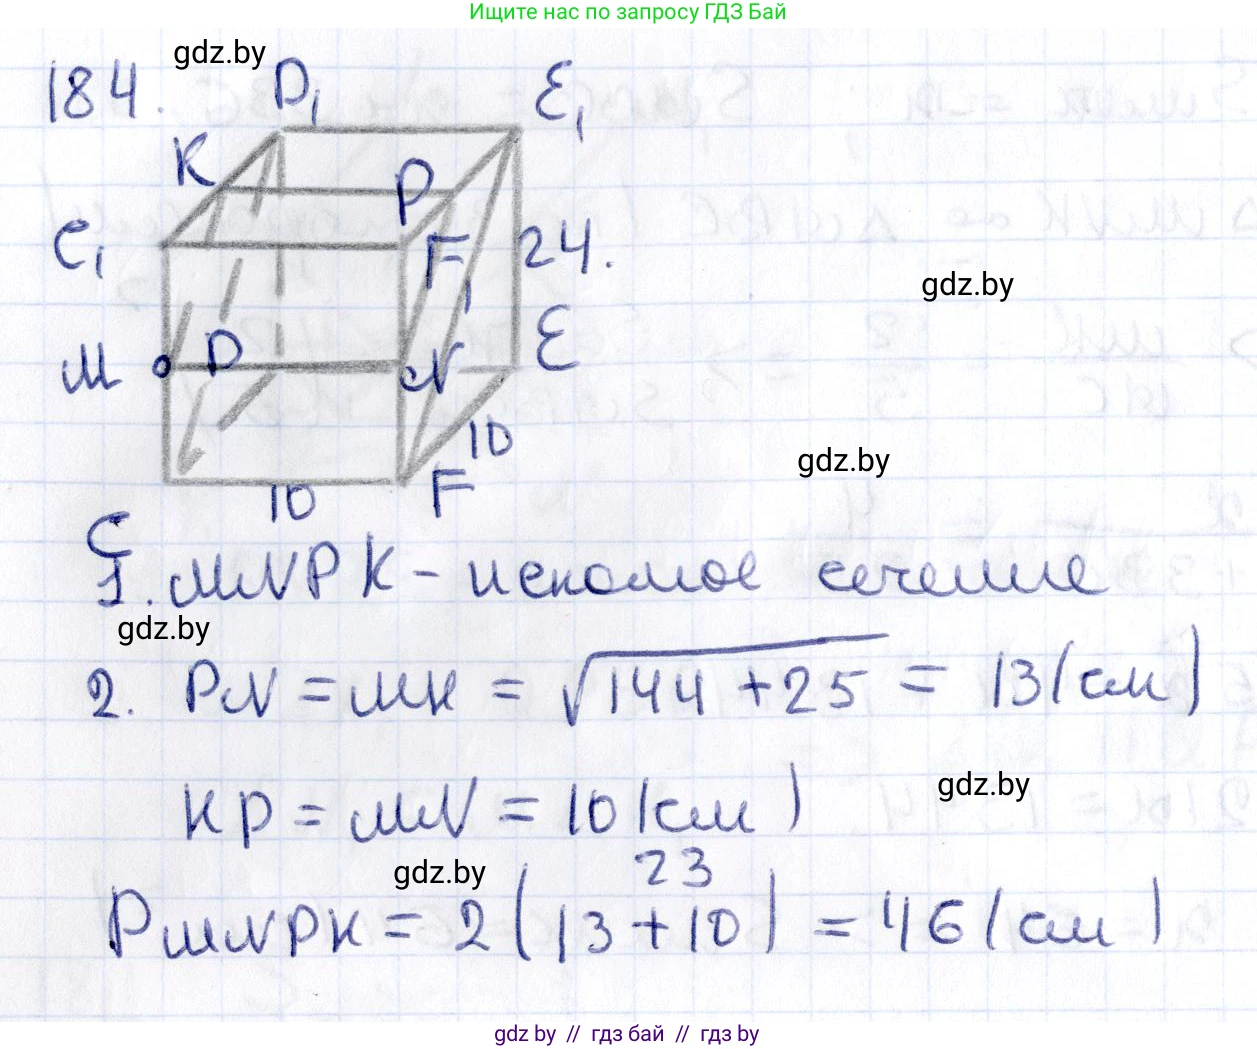 Ищите нас по запросу ГДЗ Бай
gdz.by
184.
D₁
E₁
K
P
C₁
F₁
24.
gdz.by
M
D
N
E
10
gdz.by
F
10
C
1. MNPK - искомое сечение
gdz.by
2. PN = MK = √144 + 25 = 13 (см)
KP = MN = 10 (см)
gdz.by
gdz.by
23
P MNPK = 2 (13 + 10) = 46 (см)
gdz.by // гдз бай // гдз by